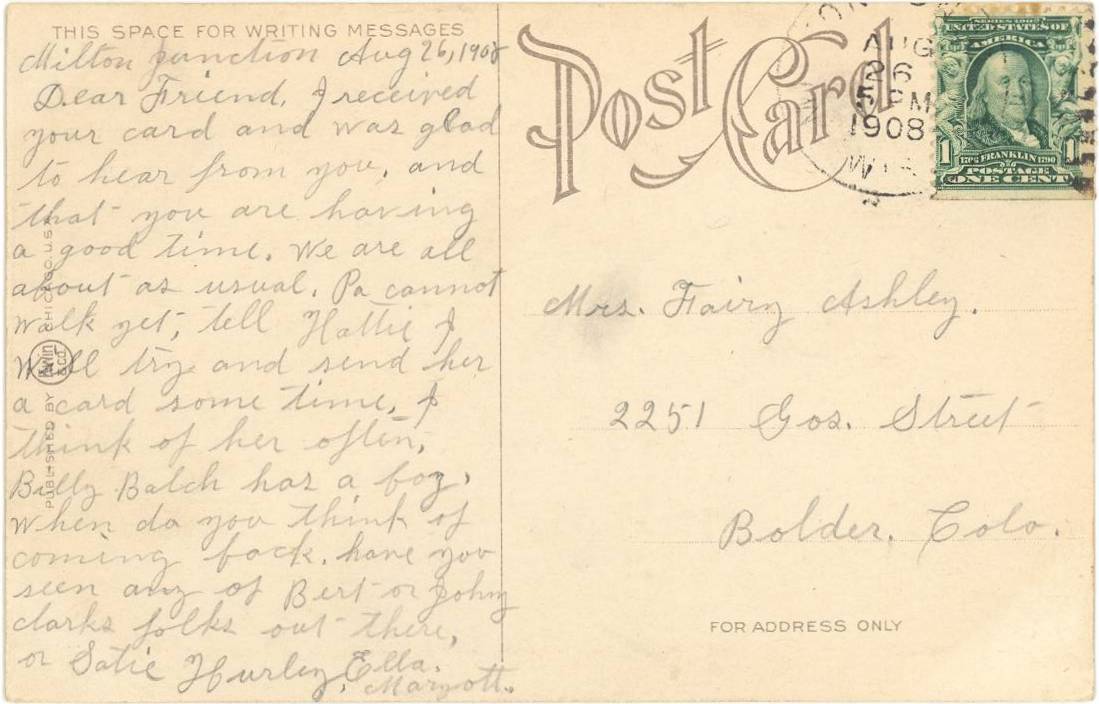 THIS SPACE FOR WRITING MESSAGES
Milton Junction Aug 26, 1908
Dear Friend, I received
your card and was glad
to hear from you, and
that you are having
a good time. We are all
about as usual. Pa cannot
walk yet, tell Hattie I
will try and send her
a card some time, I
think of her often,
Billy Balch has a boy,
when do you think of
coming back. have you
seen any of Bert or Johny
clarks folks out there,
or Satie Hurley, Ella.
Maryott.
PUBLISHED BY
CHICAGO. U.S.A.
Post Card
AUG
26
5 PM
1908
WIS
SERIES 1902
UNITED STATES OF
AMERICA
1 1
1706 FRANKLIN 1790
POSTAGE
ONE CENT
Mrs. Fairy Ashley.
2251 Gos. Street
Bolder. Colo.
FOR ADDRESS ONLY